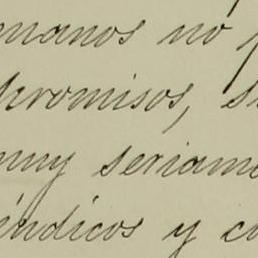 manos no p
promisos, s
muy seriame
índicos y co